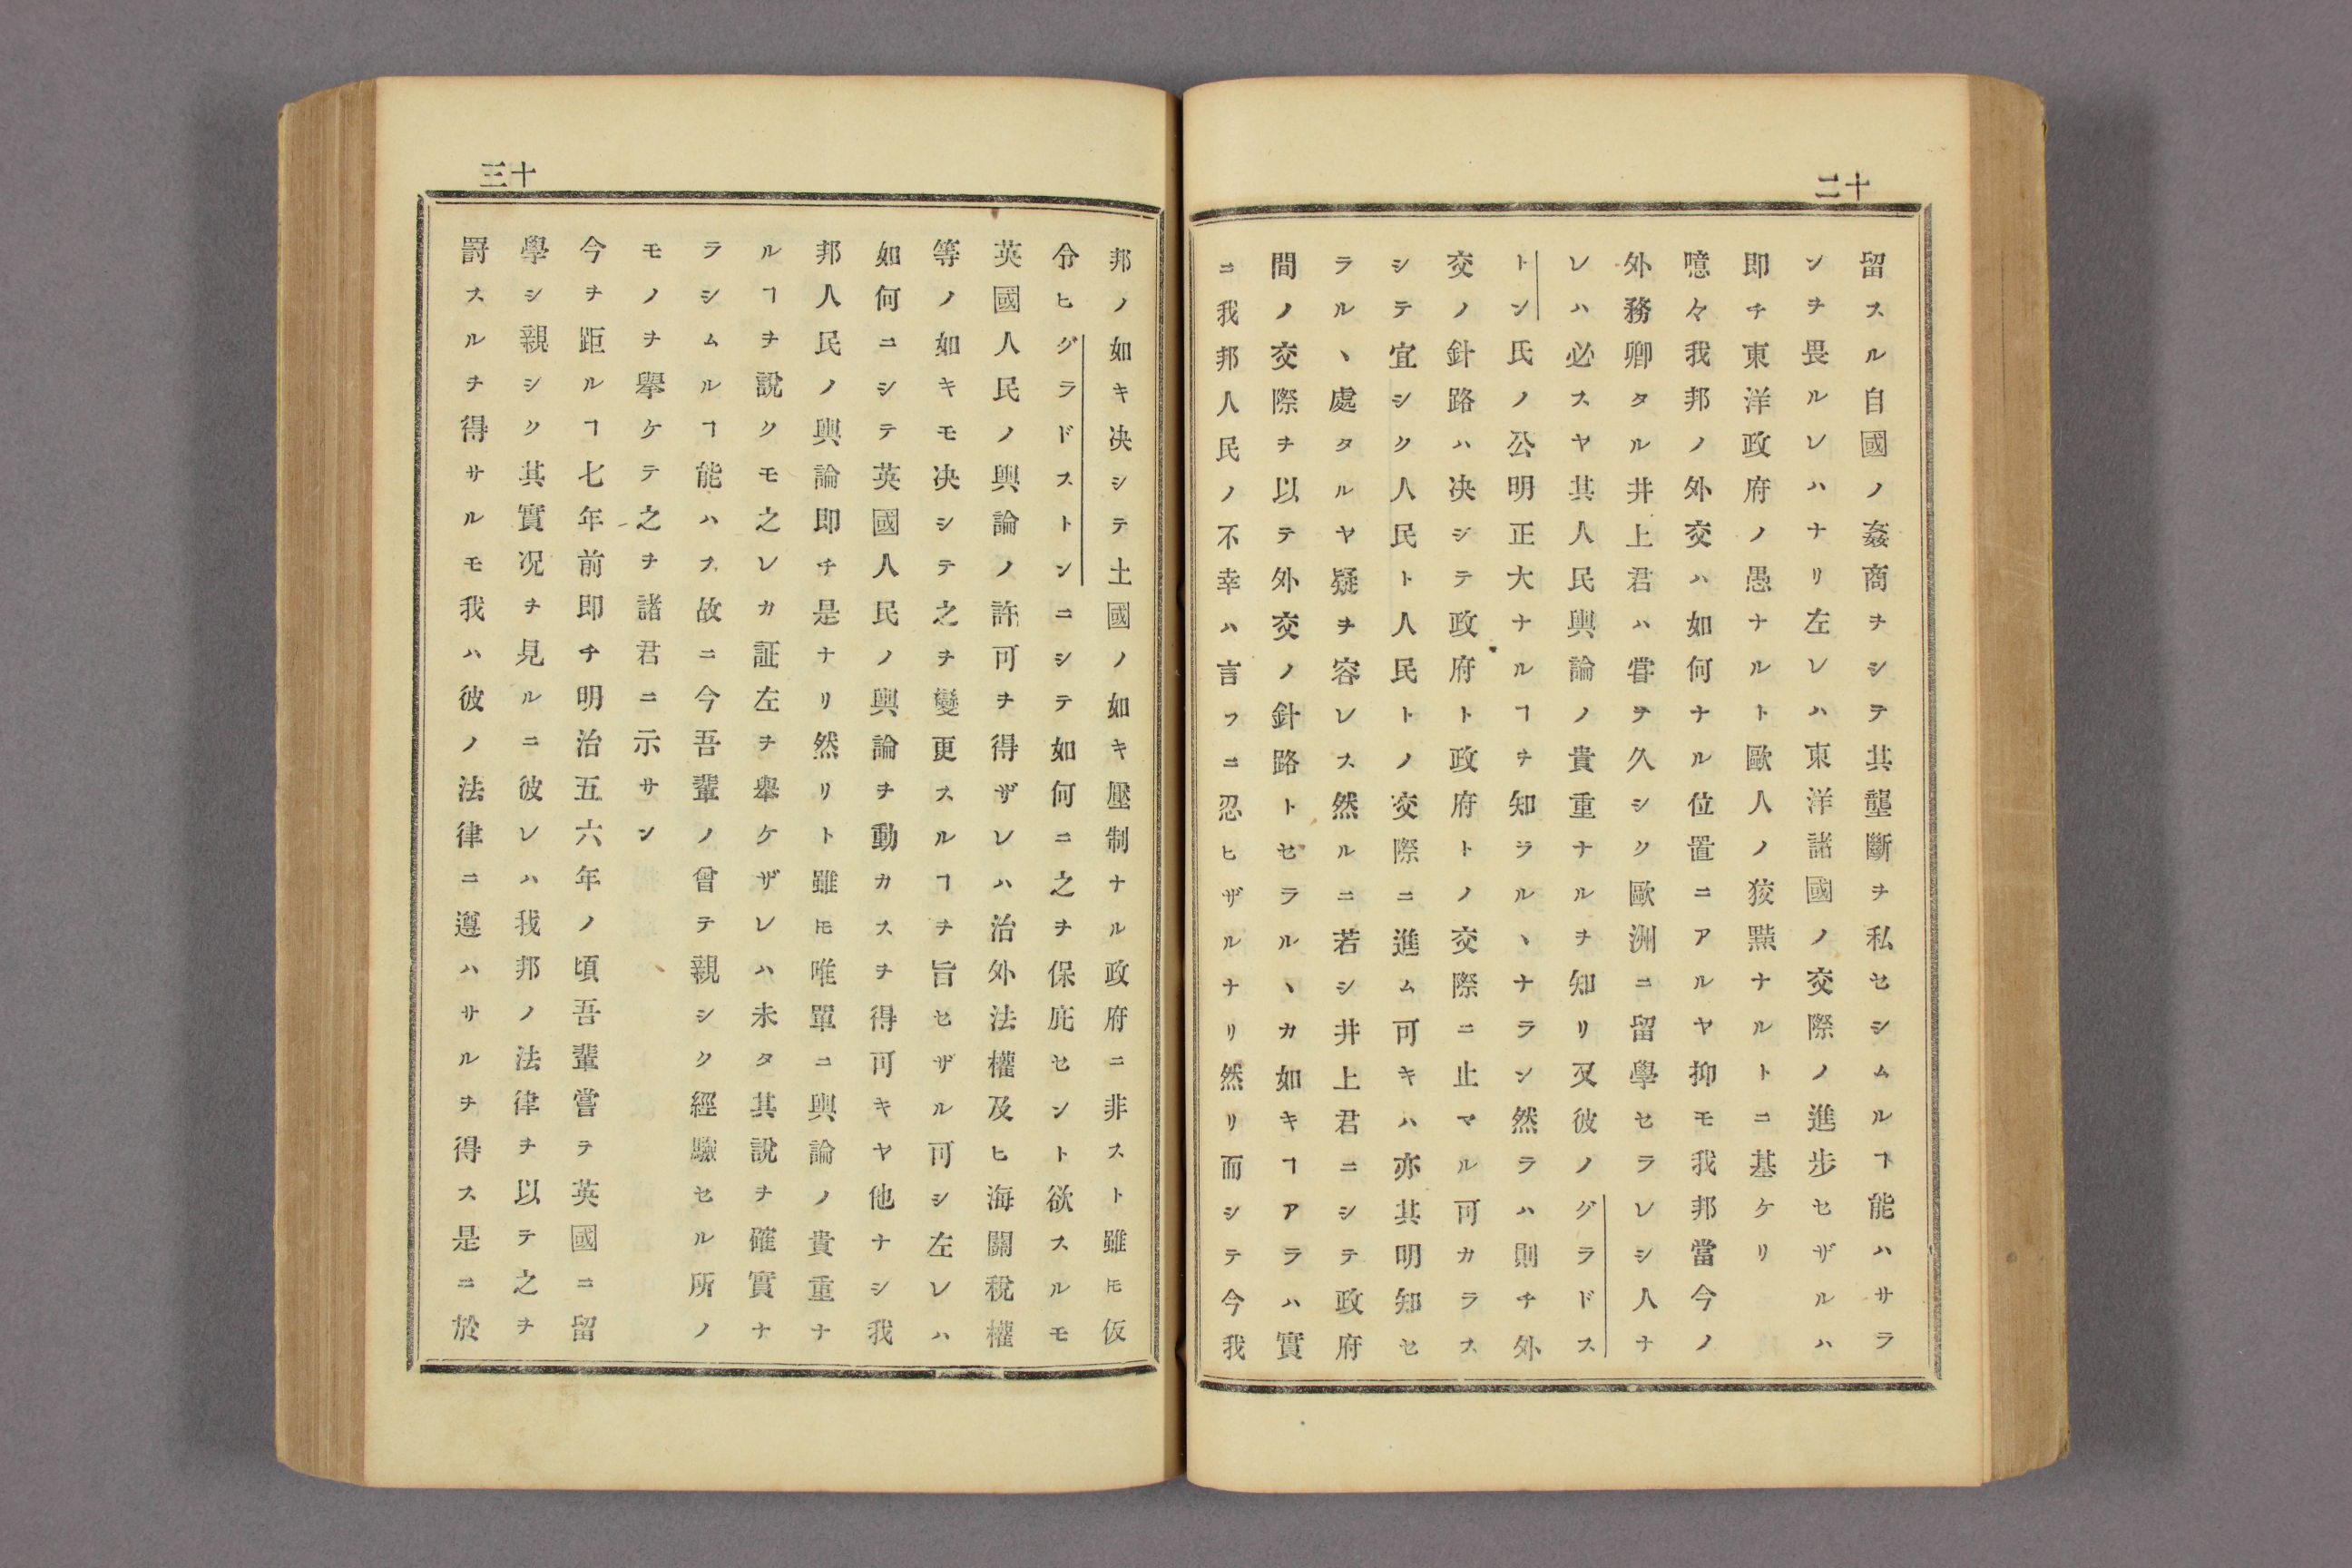 十二
留スル自國ノ姦商ヲシテ其壟斷ヲ私セシムルヿ能ハサラ
ンヲ畏ルレハナリ左レハ東洋諸國ノ交際ノ進步セザルハ
即チ東洋政府ノ愚ナルト歐人ノ狡黠ナルトニ基ケリ
噫々我邦ノ外交ハ如何ナル位置ニアルヤ抑モ我邦當今ノ
外務卿タル井上君ハ嘗テ久シク歐洲ニ留學セラレシ人ナ
レハ必スヤ其人民輿論ノ貴重ナルヲ知リ又彼ノグラドス
トン氏ノ公明正大ナルヿヲ知ラルヽナラン然ラハ則チ外
交ノ針路ハ决シテ政府ト政府トノ交際ニ止マル可カラス
シテ宜シク人民ト人民トノ交際ニ進ム可キハ亦其明知セ
ラルヽ處タルヤ疑ヲ容レス然ルニ若シ井上君ニシテ政府
間ノ交際ヲ以テ外交ノ針路トセラルヽカ如キヿアラハ實
ニ我邦人民ノ不幸ハ言フニ忍ヒザルナリ然リ而シテ今我
十三
邦ノ如キ决シテ土國ノ如キ壓制ナル政府ニ非スト雖𪜈仮
令ヒグラドストンニシテ如何ニ之ヲ保庇セント欲スルモ
英國人民ノ輿論ノ許可ヲ得ザレハ治外法權及ヒ海關稅權
等ノ如キモ决シテ之ヲ變更スルヿヲ旨セザル可シ左レハ
如何ニシテ英國人民ノ輿論ヲ動カスヲ得可キヤ他ナシ我
邦人民ノ輿論即チ是ナリ然リト雖𪜈唯單ニ輿論ノ貴重ナ
ルヿヲ說クモ之レカ証左ヲ舉ケザレハ未タ其說ヲ確實ナ
ラシムルヿ能ハス故ニ今吾輩ノ曾テ親シク經驗セル所ノ
モノヲ擧ケテ之ヲ諸君ニ示サン
今ヲ距ルヿ七年前即チ明治五六年ノ頃吾輩嘗テ英國ニ留
學シ親シク其實况ヲ見ルニ彼レハ我邦ノ法律ヲ以テ之ヲ
罸スルヲ得サルモ我ハ彼ノ法律ニ遵ハサルヲ得ス是ニ於